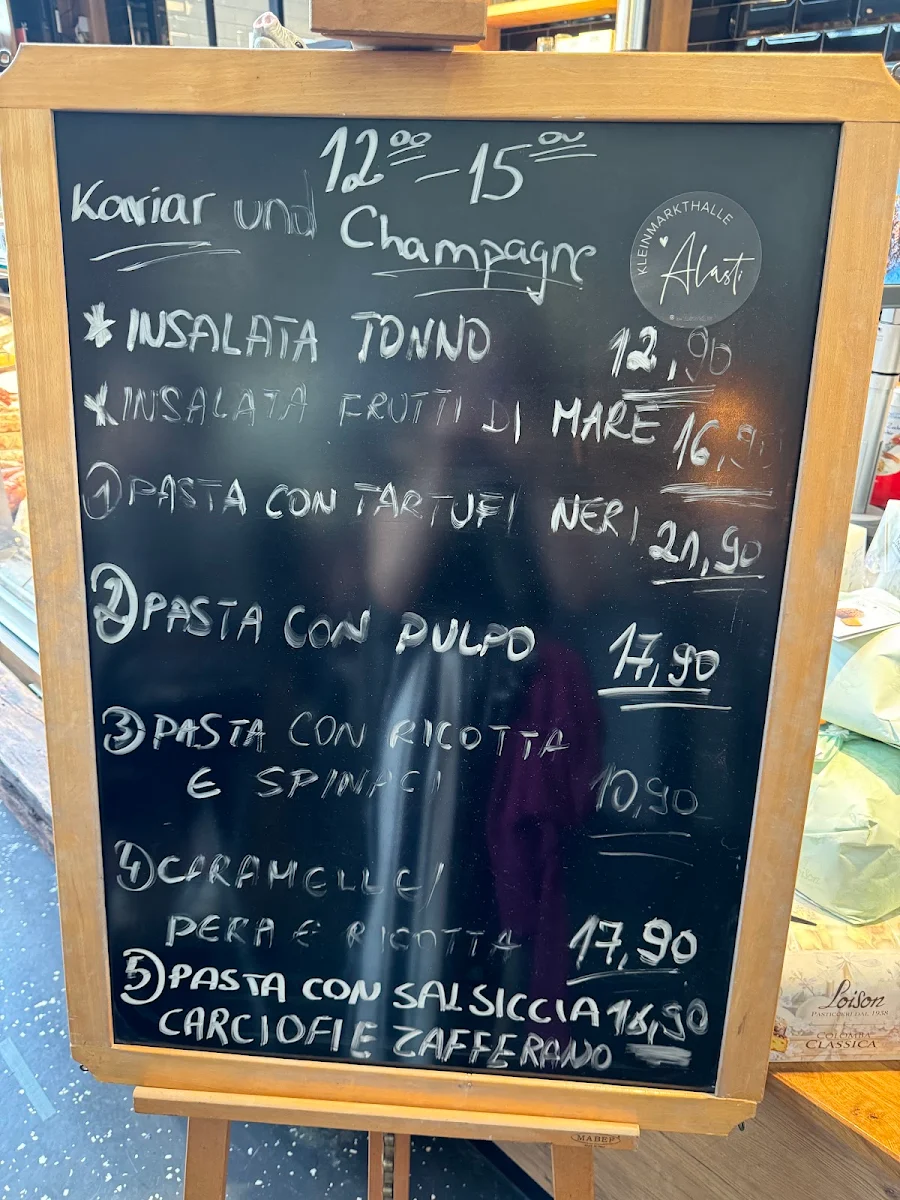 12⁰⁰ – 15⁰⁰
Kaviar und
Champagne
KLEINMARKTHALLE
Alasti
* INSALATA TONNO 12,90
* INSALATA FRUTTI DI MARE 16,90
① PASTA CON TARTUFI NERI 21,90
② PASTA CON PULPO 17,90
③ PASTA CON RICOTTA
E SPINACI 10,90
④ CARAMELLE/
PERA E RICOTTA 17,90
⑤ PASTA CON SALSICCIA
CARCIOFI E ZAFFERANO
Loison
PASTICCERI DAL 1938
COLOMBA
CLASSICA
MABEF